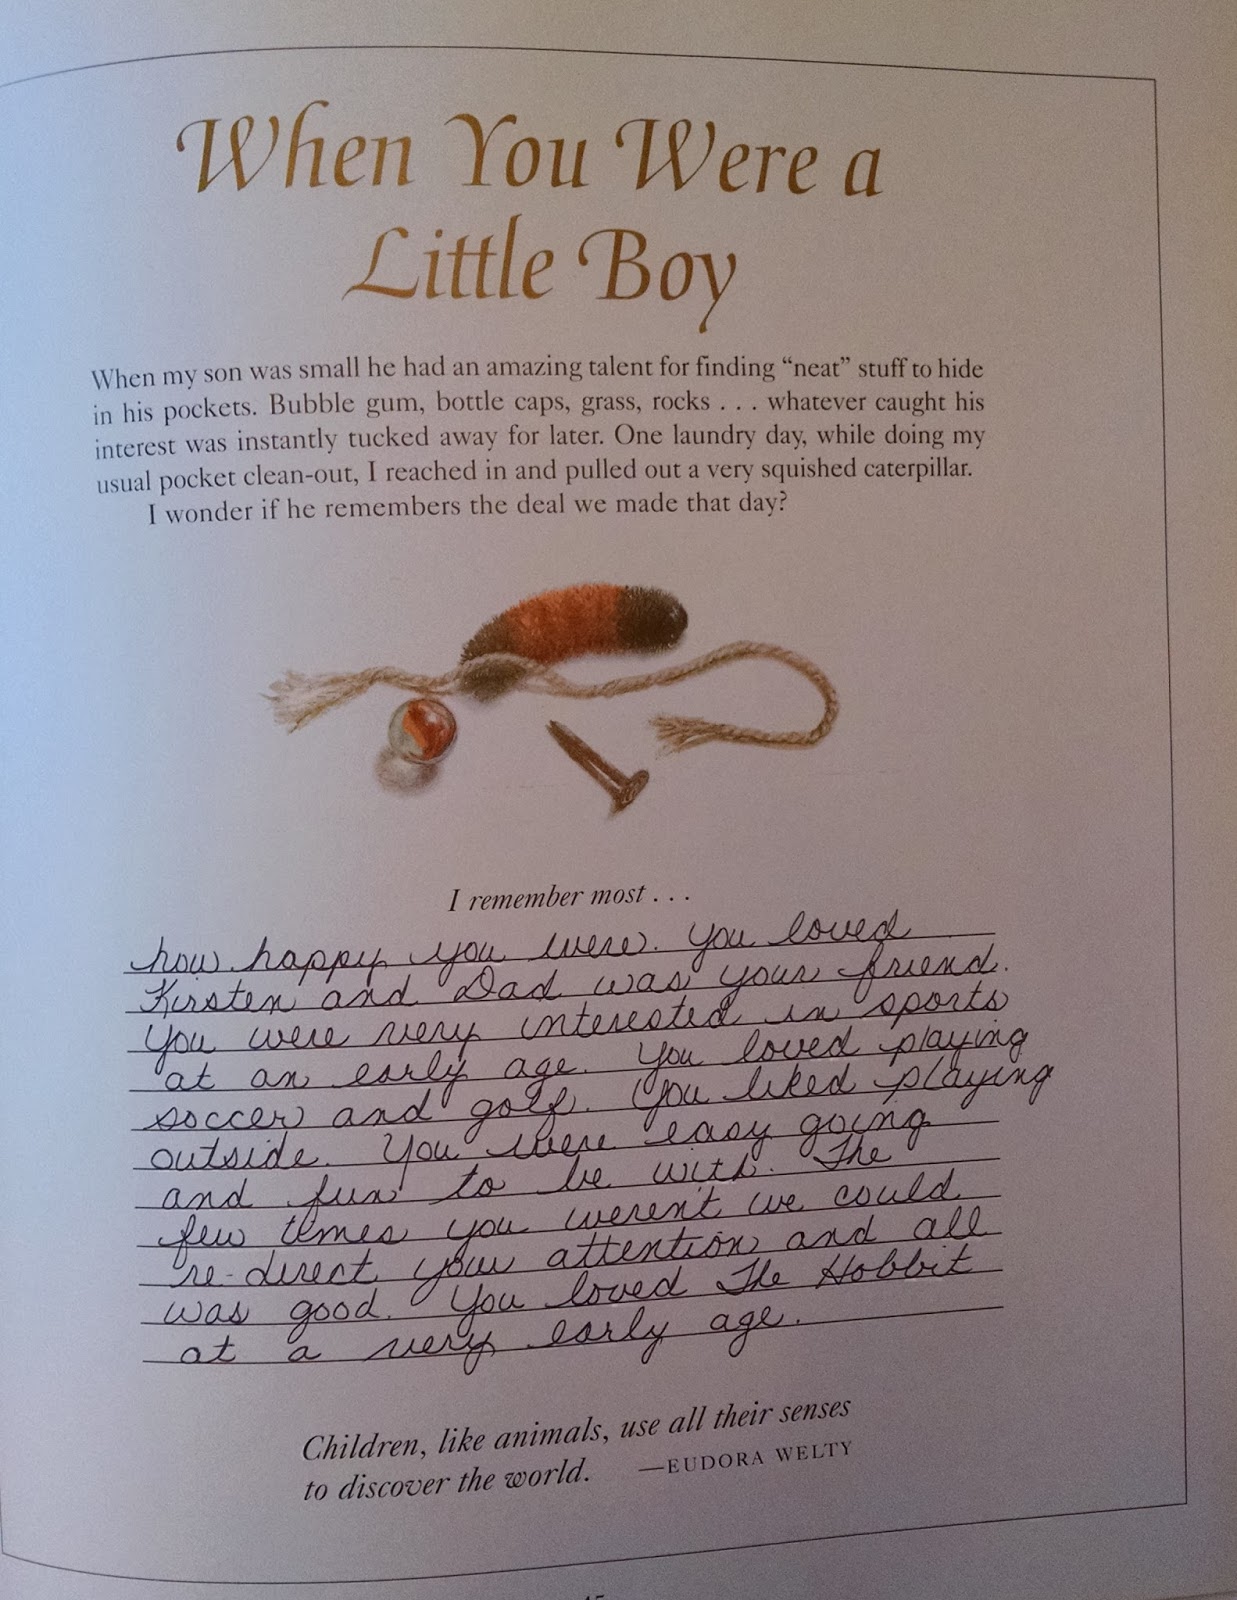 When You Were a
Little Boy
When my son was small he had an amazing talent for finding “neat” stuff to hide
in his pockets. Bubble gum, bottle caps, grass, rocks . . . whatever caught his
interest was instantly tucked away for later. One laundry day, while doing my
usual pocket clean-out, I reached in and pulled out a very squished caterpillar.
I wonder if he remembers the deal we made that day?
I remember most . . .
how happy you were. You loved
Kirsten and Dad was your friend.
You were very interested in sports
at an early age. You loved playing
soccer and golf. You liked playing
outside. You were easy going
and fun to be with. The
few times you weren't we could
re-direct your attention and all
was good. You loved The Hobbit
at a very early age.
Children, like animals, use all their senses
to discover the world. —EUDORA WELTY